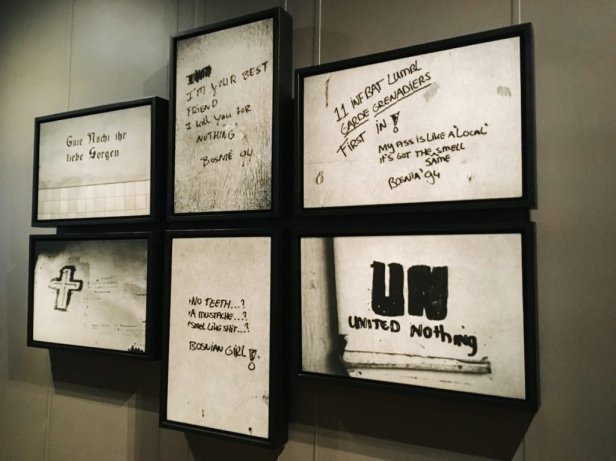 Gute Nacht ihr
liebe Sorgen
I'M YOUR BEST
FRIEND
I KILL YOU FOR
NOTHING
BOSNIË 94
11 INFBAT LUMBL
GARDE GRENADIERS
FIRST IN!
MY ASS IS LIKE A "LOCAL"
IT'S GOT THE SAME SMELL
BOSNIA '94
NO TEETH...?
A MUSTACHE...?
SMEL LIKE SHIT...?
BOSNIAN GIRL!
UN
UNITED NothinG